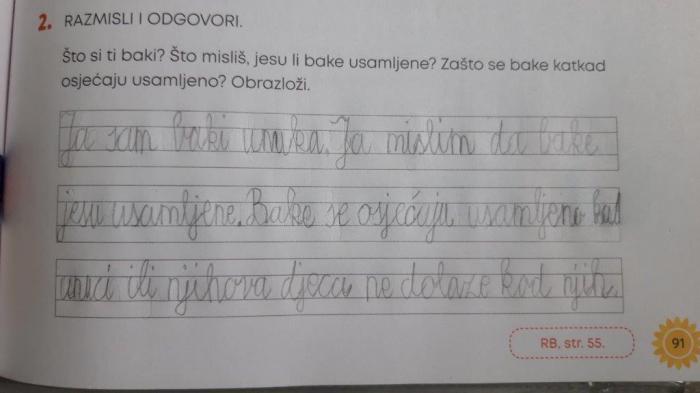 2. RAZMISLI I ODGOVORI.
Što si ti baki? Što misliš, jesu li bake usamljene? Zašto se bake katkad
osjećaju usamljeno? Obrazloži.
Ja sam baki unuka. Ja mislim da bake
jesu usamljene. Bake se osjećaju usamljeno kad
unuci ili njihova djeca ne dolaze kod njih.
RB, str. 55.
91